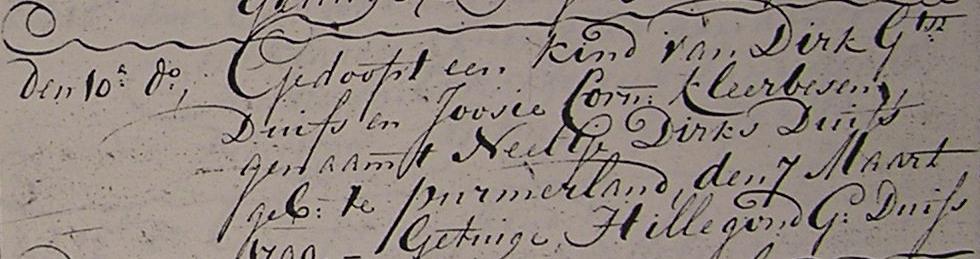 Getuige
Den 10e do, Gedoopt een kind van Dirk Gtsz
Duifs en Joosie Corn: Kleerbesem,
genaamt Neeltje Dirks Duifs
geb: te Purmerland, den 7 Maart
1799 - Getuige, Hillegond G: Duifs